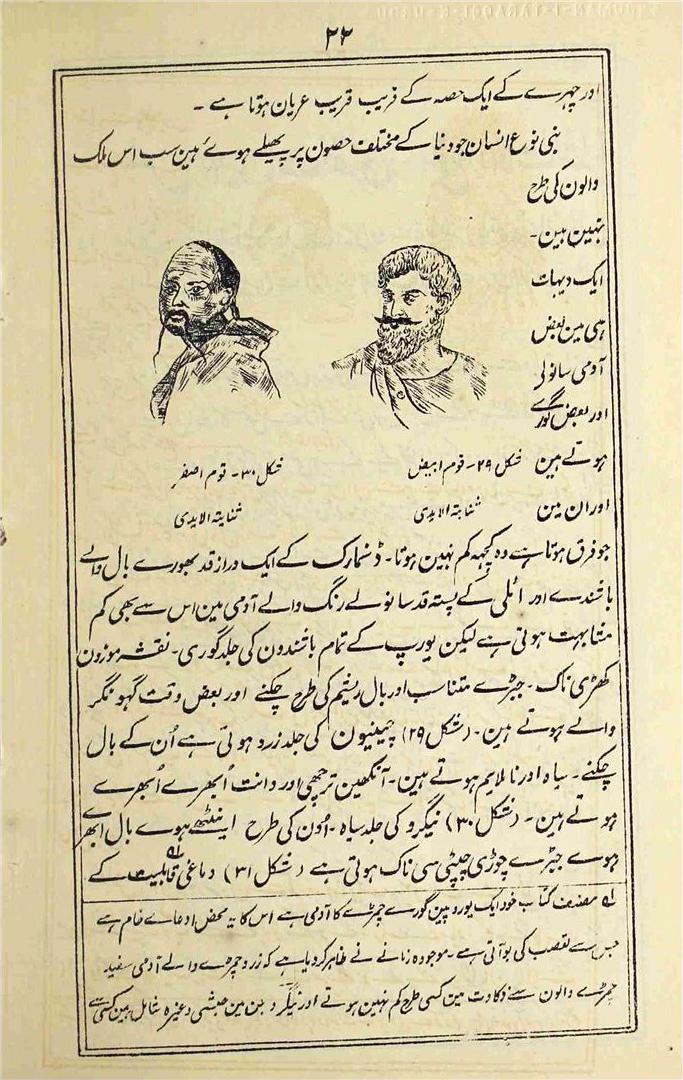 ۲۲
اور چہرے کے ایک حصہ کے قریب قریب عریان ہوتا ہے ۔
بنی نوع انسان جو دنیا کے مختلف حصون پر پھیلے ہوئے ہین سب اس ملک
والون کی طرح
نہین ہین۔
ایک دیہات
ہی مین بعض
آدمی سانولی
اور بعض گورے
ہوتے ہین
شکل ۲۹۔ قوم ابیض
شکل ۳۰۔ قوم اصفر
اور ان مین
ثنایتہ الایدی
ثنایتہ الایدی
جو فرق ہوتا ہے وہ کچہہ کم نہین ہوتا۔ ڈنمارک کے ایک دراز قد بھورے بال والے
باشندے اور اٹلی کے پستہ قد سانولے رنگ والے آدمی مین اس سے بھی کم
مشابہت ہوتی ہے لیکن یورپ کے تمام باشندون کی جلد گوری۔ نقشہ موزون
کھڑی ناک۔ جبڑے متناسب اور بال ریشم کی طرح چکنے اور بعض وقت گہونگر
والے ہوتے ہین۔ (شکل ۲۹) چینیون کی جلد زرد ہوتی ہے اُن کے بال
چکنے۔ سیاہ اور ناملایم ہوتے ہین۔ آنکھین ترچھی اور دانت اُبھرے اُبھرے
ہوتے ہین۔ (شکل ۳۰) نیگرو کی جلد سیاہ۔ اُون کی طرح اینٹھے ہوے بال ابھرے
ہوے جبڑے چوڑی چپٹی سی ناک ہوتی ہے (شکل ۳۱) دماغی قابلیت کے
لہ مصنف کتاب خود ایک یوروپین گورے چمڑے کا آدمی ہے اس کا یہ محض ادعاے خام ہے
جس سے تعصب کی بو آتی ہے۔ موجودہ زمانے نے ظاہر کر دیا ہے کہ زرد چمڑے والے آدمی سفید
چمڑے والون سے ذکاوت مین کسی طرح کم نہین ہوتے اور نیگرو جن مین حبشی وغیرہ شامل ہین کسی سے